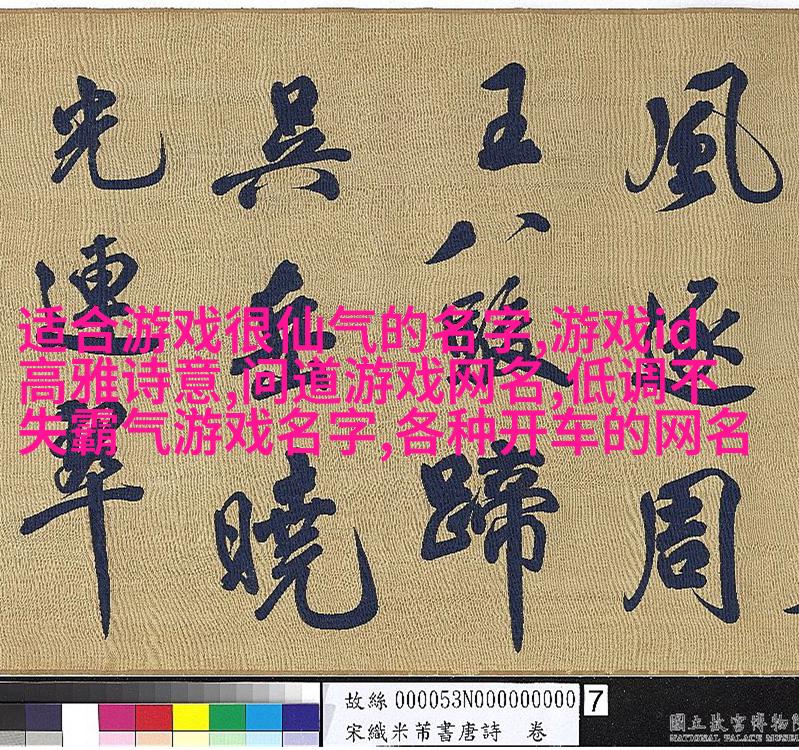 風逐周
王八駿蹄
吳岳曉
光連翠
适合游戏很仙气的名字,游戏id
高雅诗意,问道游戏网名,低调不
失霸气游戏名字,各种开车的网名
故絲000053N000000000 7
宋織米芾書唐詩 卷
國立故宮博物院
NATIONAL PALACE MUSEUM